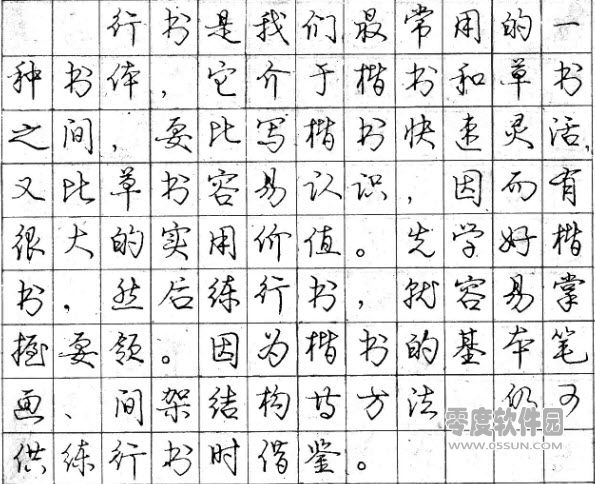 行书是我们最常用的一
种书体，它介于楷书和草书
之间，要比写楷书快速灵活，
又比草书容易认识，因而有
很大的实用价值。先学好楷
书，然后练行书，就容易掌
握要领。因为楷书的基本笔
画、间架结构等方法 仍可
供练行书时借鉴。
零度软件园
WWW.OSSUN.COM